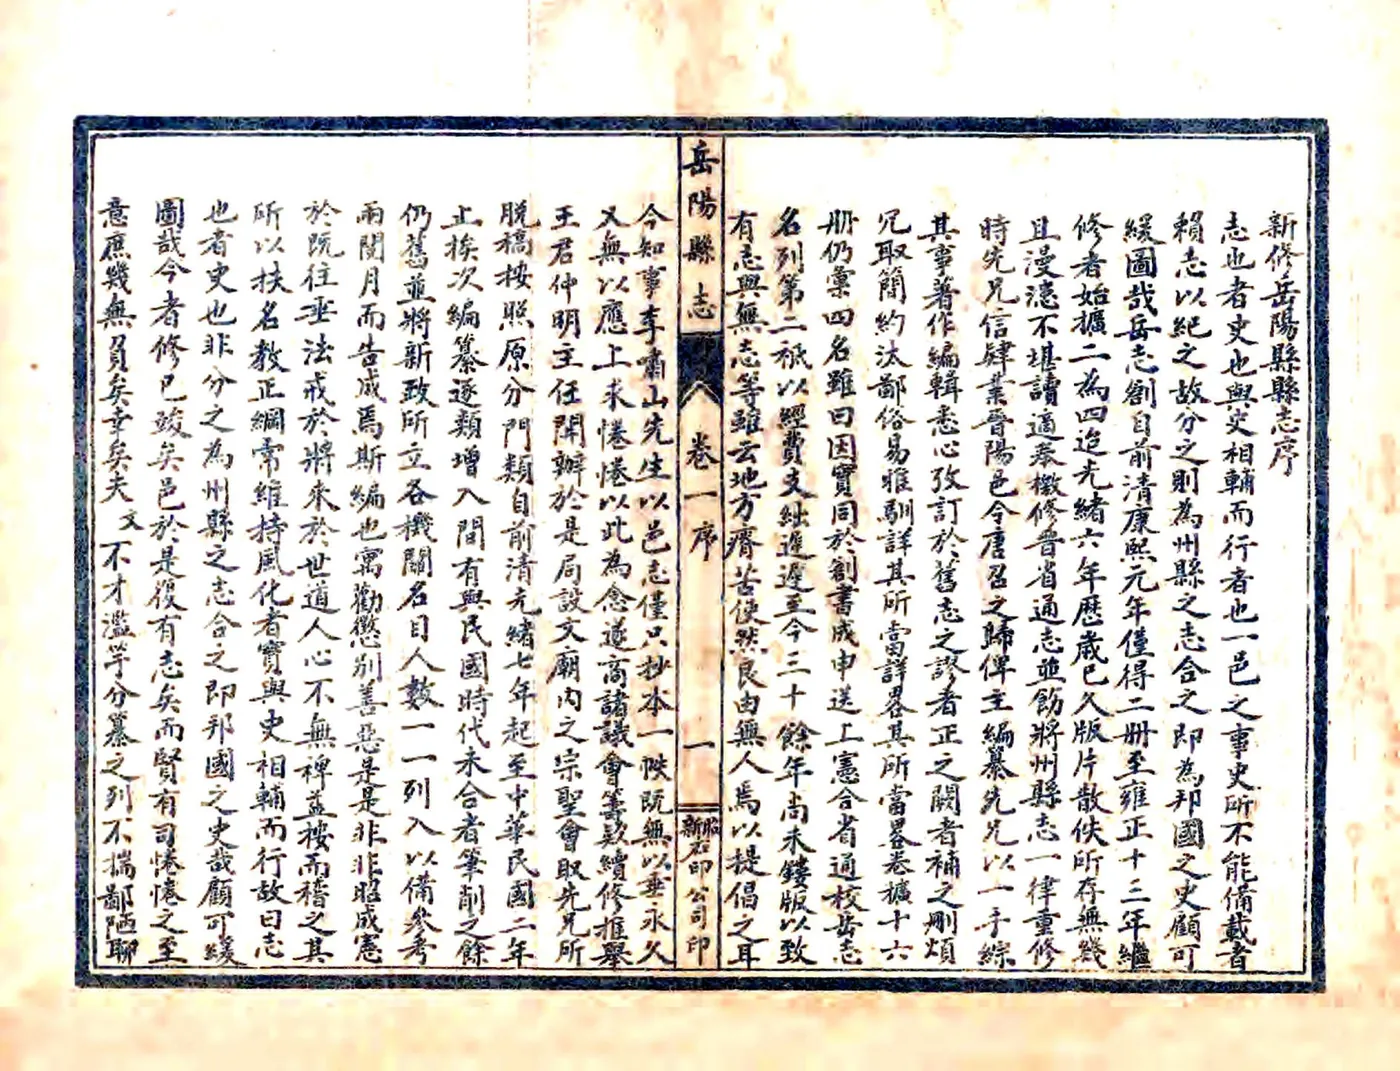 新修岳陽縣縣志序
志也者史也與史相輔而行者也一邑之事史所不能備載者
賴志以紀之故分之則為州縣之志合之即為邦國之史顧可
緩圖哉岳志創自前清康熙元年僅得二册至雍正十三年繼
修者始擴二為四迨光緒六年歷歲已久版片散佚所存無幾
且漫漶不堪讀適奉檄修晉省通志並飭將州縣志一律重修
時先兄信肄業晉陽邑令唐召之歸俾主編纂先兄以一手綜
其事著作編輯悉心攷訂於舊志之謬者正之闕者補之刪煩
冗取簡約汰鄙俗易雅馴詳其所當詳畧其所當畧卷擴十六
册仍彙四名雖曰因實同於創書成申送上憲合省通校岳志
名列第二祇以經費支絀遲遲至今三十餘年尚未鏤版以致
有志與無志等雖云地方瘠苦使然良由無人焉以提倡之耳
岳陽縣志 卷一序 一 石印公司印
今知事李嘯山先生以邑志僅只抄本一帙既無以垂永久
又無以應上求惓惓以此為念遂商諸議會籌款續修推舉
王君仲明主任開辦於是局設文廟内之宗聖會取先兄所
脫稿按照原分門類自前清光緒七年起至中華民國二年
止挨次編纂逐類增入間有與民國時代未合者筆削之餘
仍舊並將新政所立各機關名目人數一一列入以備參考
兩閱月而告成焉斯編也寓勸懲別善惡是是非非昭成憲
於既往垂法戒於將來於世道人心不無裨益稽而稽之其
所以扶名教正綱常維持風化者實與史相輔而行故曰志
也者史也非分之為州縣之志合之即邦國之史哉顧可緩
圖哉今者修已竣矣邑於是復有志矣而賢有司惓惓之至
意庶幾無負矣幸矣夫文不才濫竽分纂之列不揣鄙陋聊